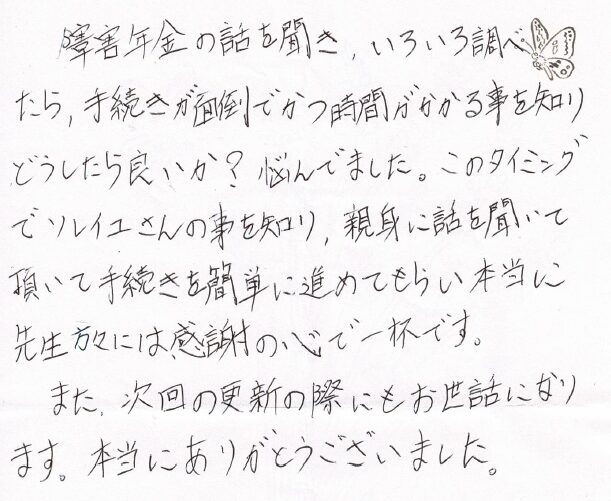 障害年金の話を聞き、いろいろ調べ
たら、手続きが面倒でかつ時間がかかる事を知り
どうしたら良いか？悩んでました。このタイミング
でソレイユさんの事を知り、親身に話を聞いて
頂いて手続きを簡単に進めてもらい本当に
先生方々には感謝の心で一杯です。
また、次回の更新の際にもお世話になり
ます。本当にありがとうございました。